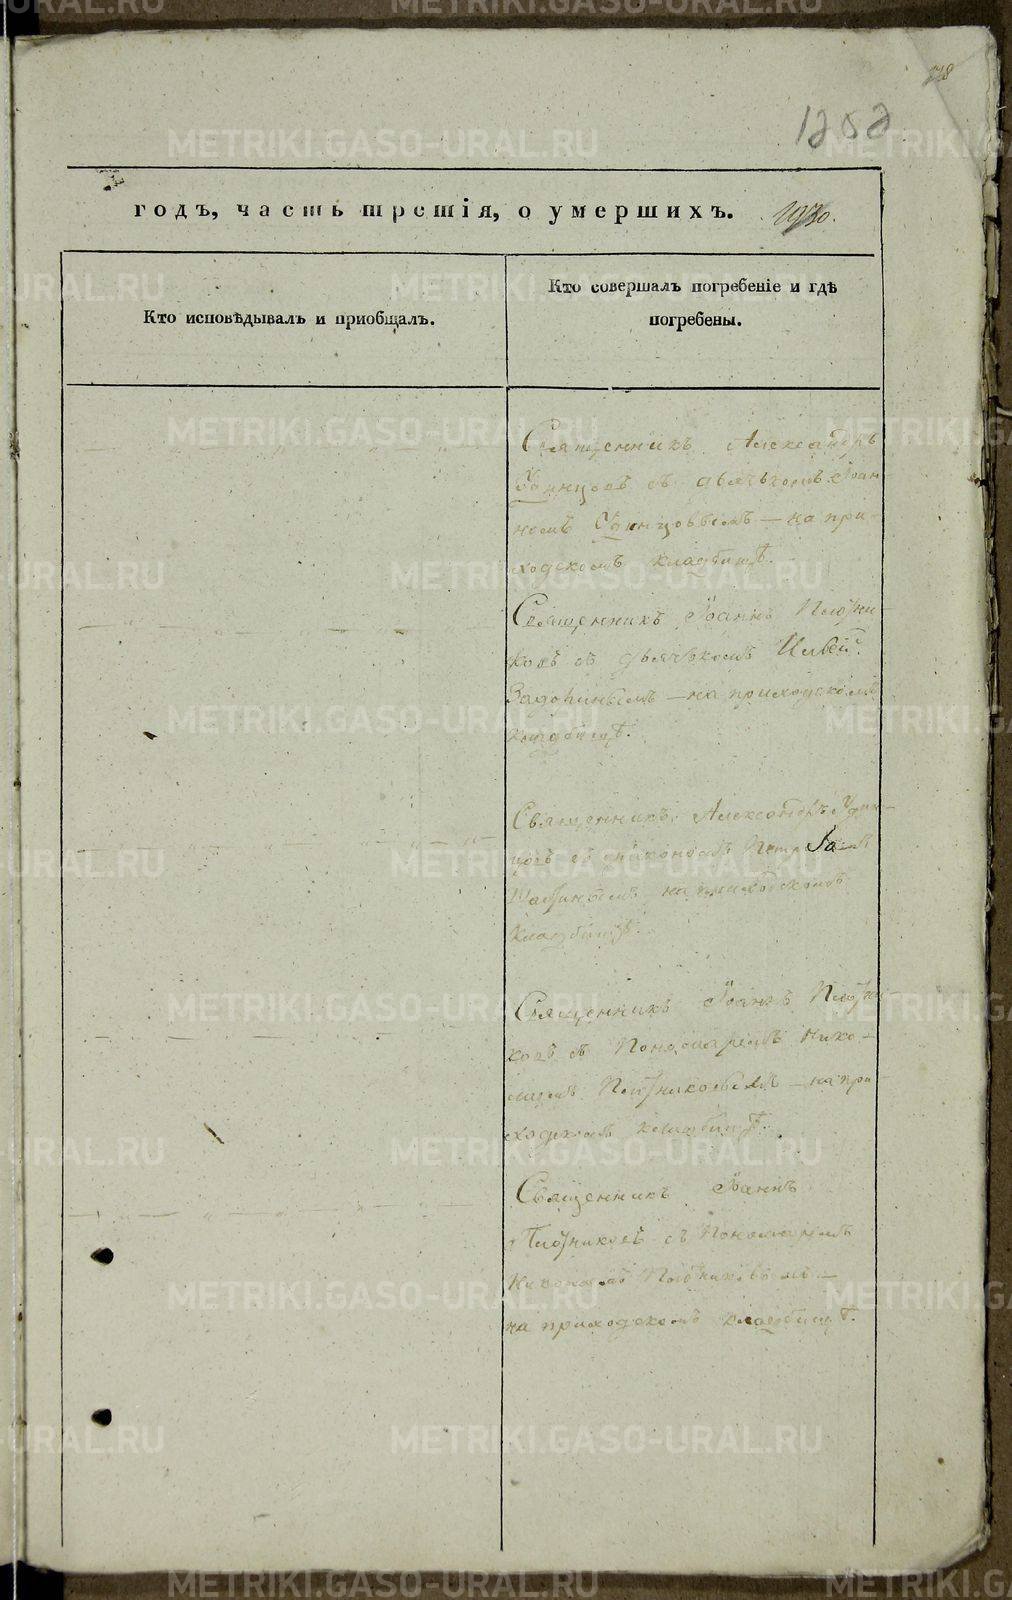 1202
годъ, часть третія, о умершихъ.
Кто исповѣдывалъ и приобщалъ.
Кто совершалъ погребеніе и гдѣ
погребены.
Священникъ Александръ
Удинцовъ съ дьячькомъ Іоан
номъ Удинцовымъ — на при-
ходскомъ кладбищѣ.
Священникъ Іоаннъ Плотни-
ковъ съ дьячькомъ
— на приходскомъ
кладбищѣ.
Священникъ Александръ Удин-
цовъ съ Петромъ
на приходскомъ
кладбищѣ.
Священникъ Іоаннъ Плотни-
ковъ съ Пономаремъ Нико-
лаемъ Плотниковымъ — на при-
ходскомъ кладбищѣ.
Священникъ Іоаннъ
Плотниковъ съ Пономаремъ
Николаемъ Плотниковымъ —
на приходскомъ кладбищѣ.
METRIKI.GASO-URAL.RU